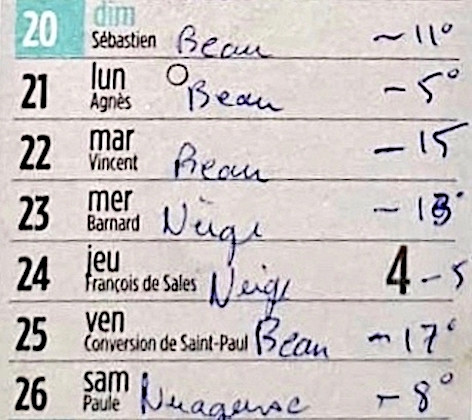 20 dim Sébastien Beau -11°
21 lun Agnès Beau -5°
22 mar Vincent Beau -15
23 mer Barnard Neige -13°
24 jeu François de Sales Neige 4 -5
25 ven Conversion de Saint-Paul Beau -17°
26 sam Paule Nuageuse -8°